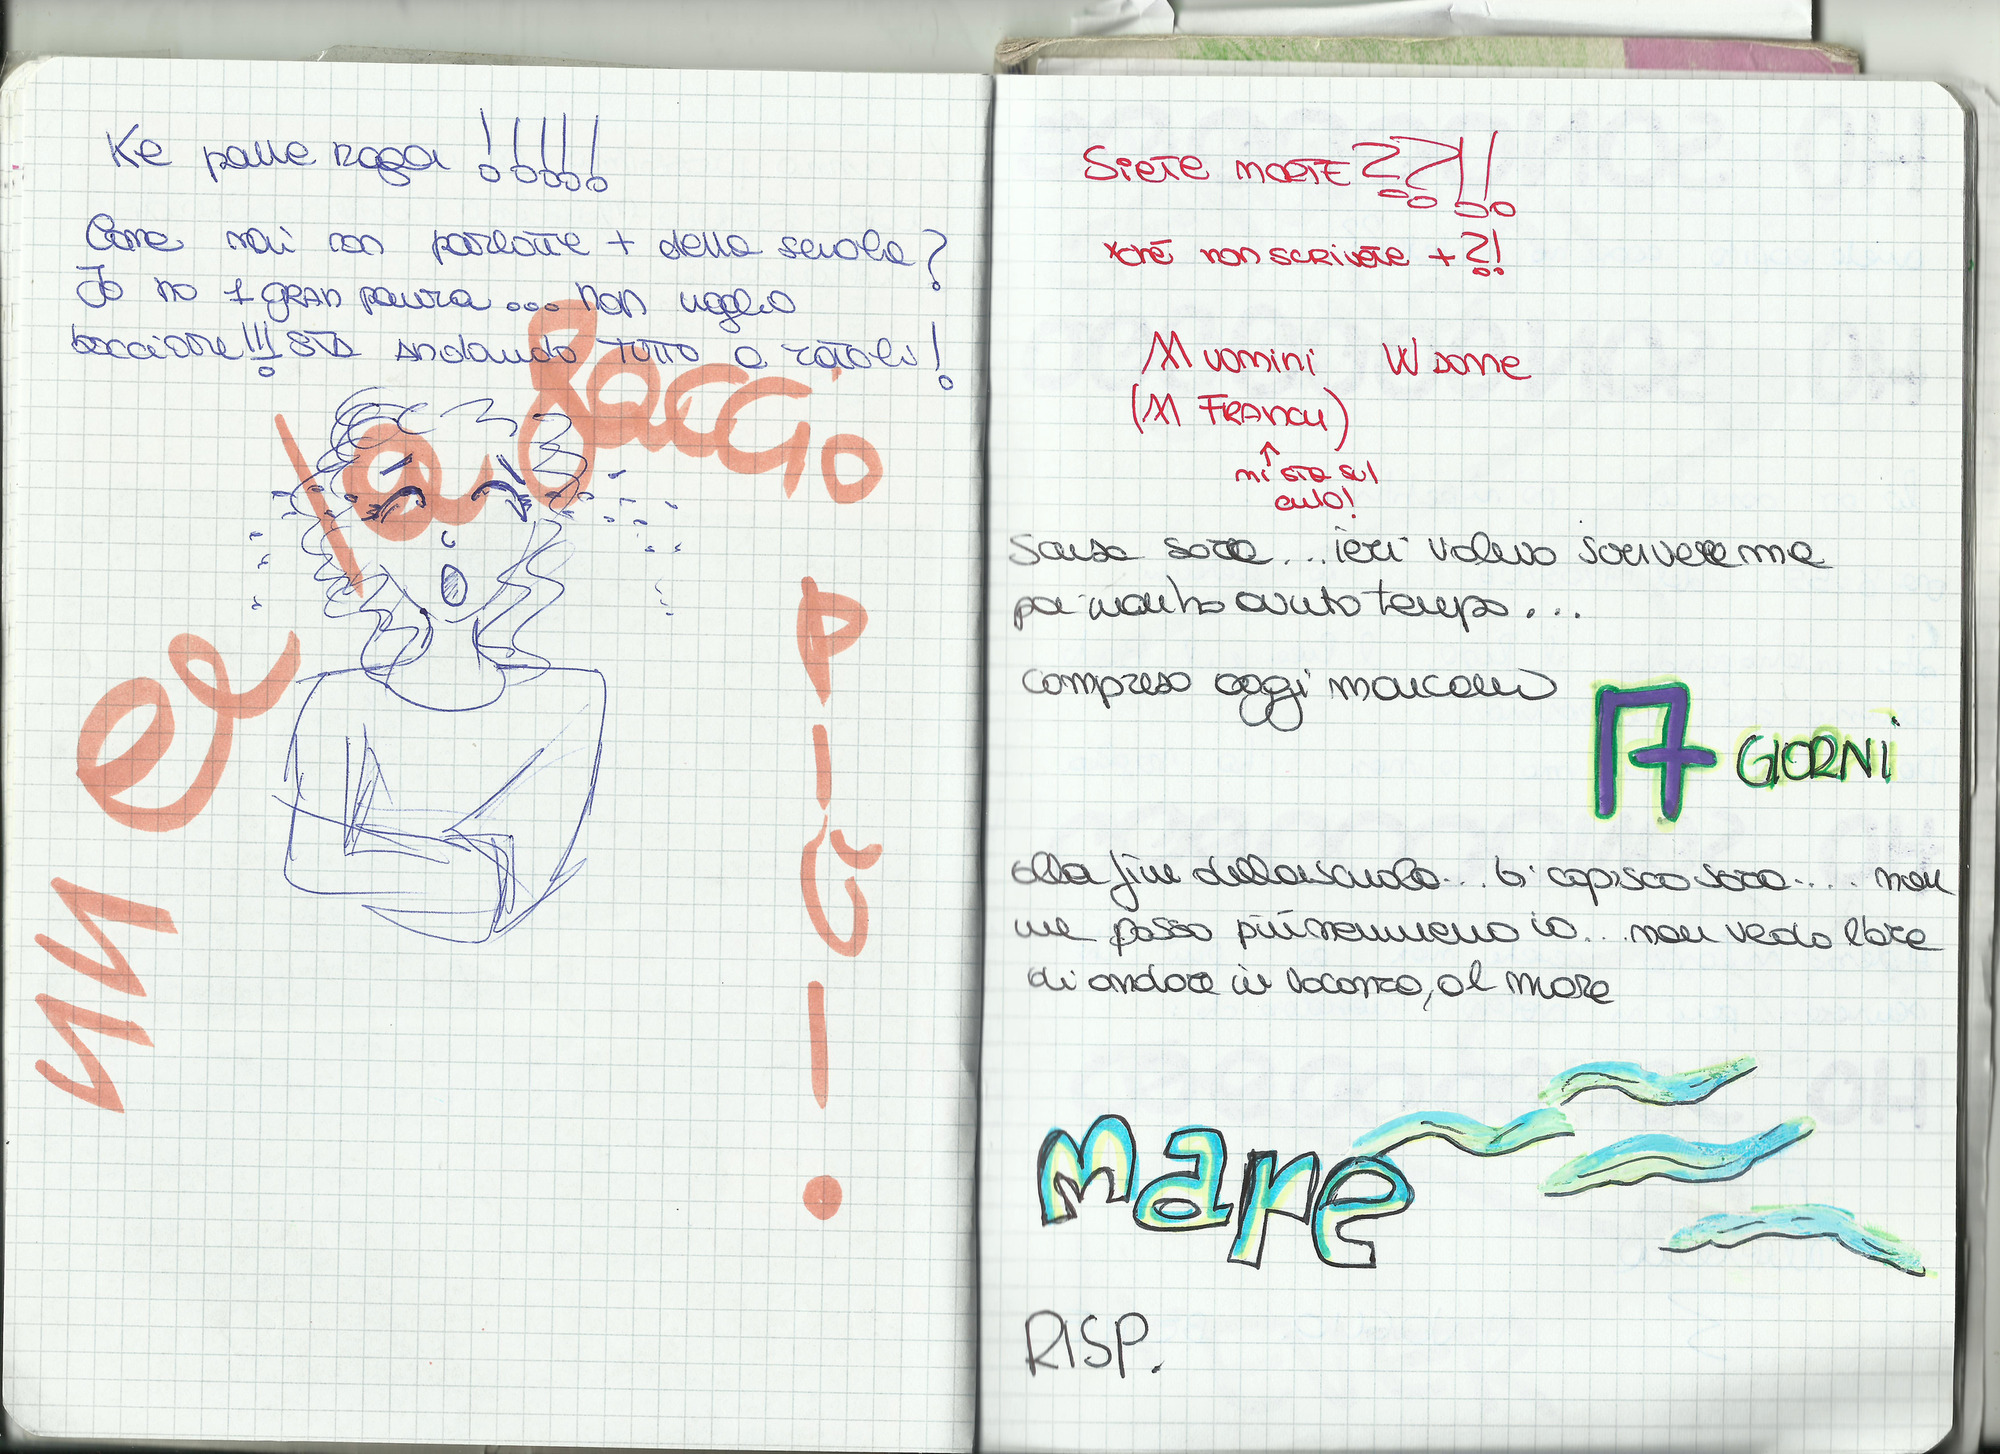 Ke palle raga !!!!!
Come mai non parlate + della scuola?
Io ho 1 gran paura... non voglio
bocciare!!! Sta andando tutto a rotoli!
nn ce la faccio
più!
Siete morte??!!
xché non scrivete +?!
M uomini W donne
(M FRANCY)
↑
mi sta sul
culo!
Scusa sore... ieri volevo scrivere ma
poi non ho avuto tempo...
compreso oggi mancano
17 GIORNI
alla fine della scuola... ti capisco sora.... non
ne posso più nemmeno io... non vedo l'ora
di andare in vacanza, al mare
mare
RISP.